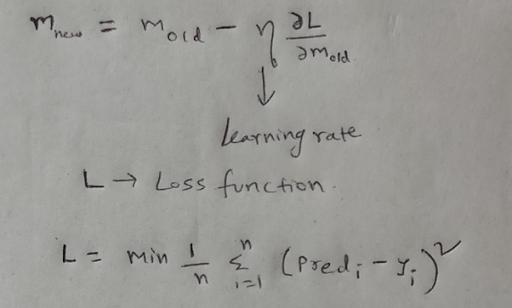 m_new = m_old - η ∂L/∂m_old
↓
Learning rate
L → Loss function.
L = min 1/n Σ_{i=1}^{n} (Pred_i - y_i)^2